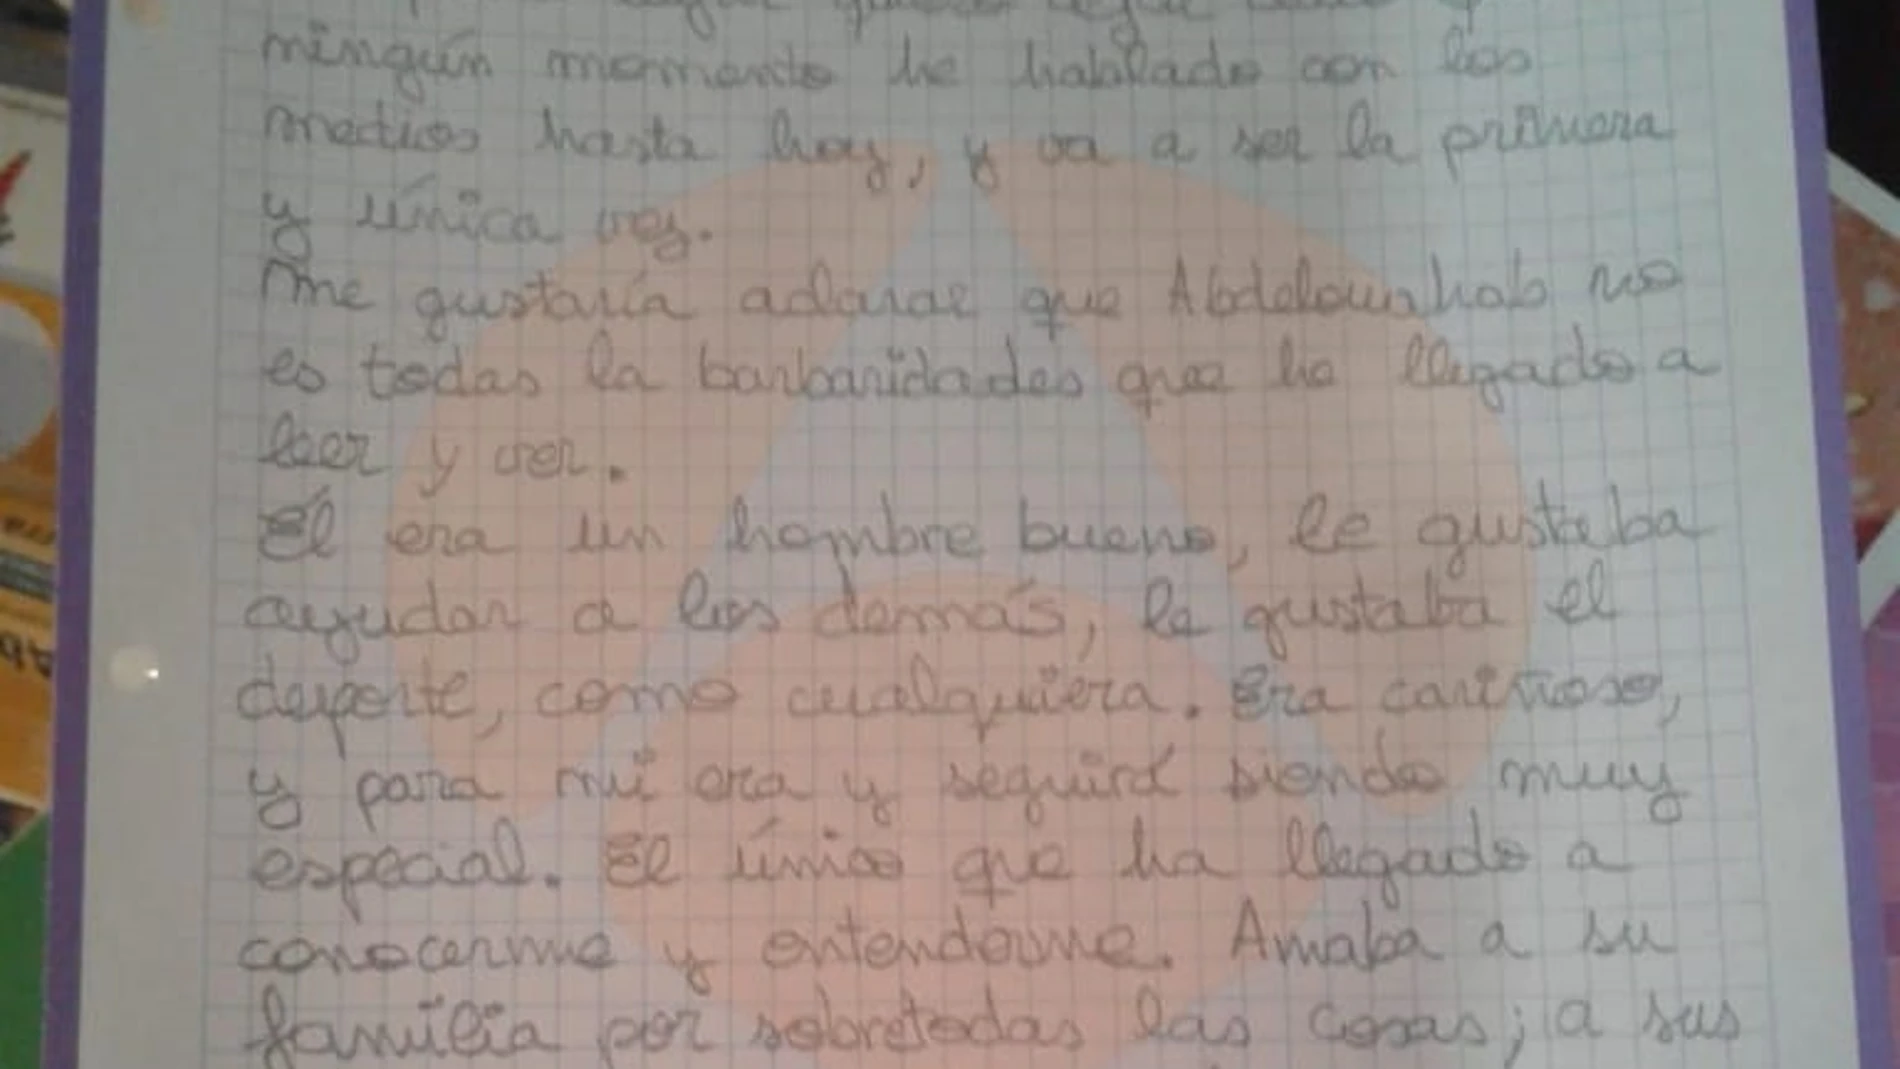 ningún momento he hablado con los
medios hasta hoy, y va a ser la primera
y única vez.
Me gustaría aclarar que Abdelouahab no
es todas la barbaridades que he llegado a
leer y ver.
Él era un hombre bueno, le gustaba
ayudar a los demás, le gustaba el
deporte, como cualquiera. Era cariñoso,
y para mi era y seguirá siendo muy
especial. El único que ha llegado a
conocerme y entenderme. Amaba a su
familia por sobretodas las cosas; a sus